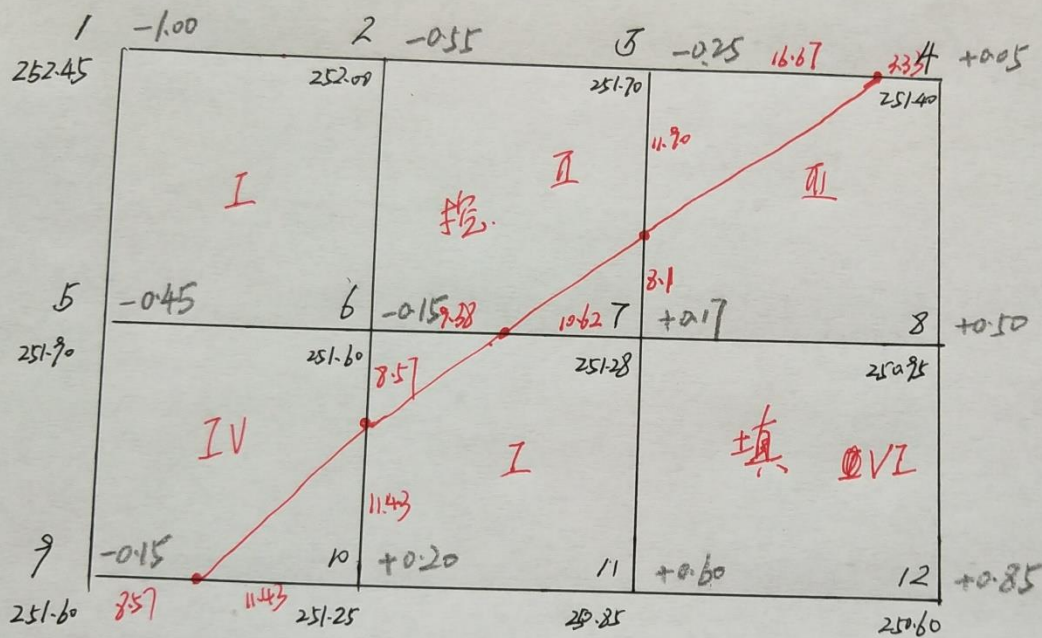 1 -1.00 2 -0.55 3 -0.25 16.67 3.33 4 +0.05
252.45 252.00 251.70 251.40
11.90
I 挖. II III
8.1
5 -0.45 6 -0.15 9.38 10.62 7 +0.17 8 +0.50
251.90 251.60 8.57 251.28 250.95
IV I 填 VI
11.43
9 -0.15 10 +0.20 11 +0.60 12 +0.85
251.60 8.57 11.43 251.25 250.85 250.60